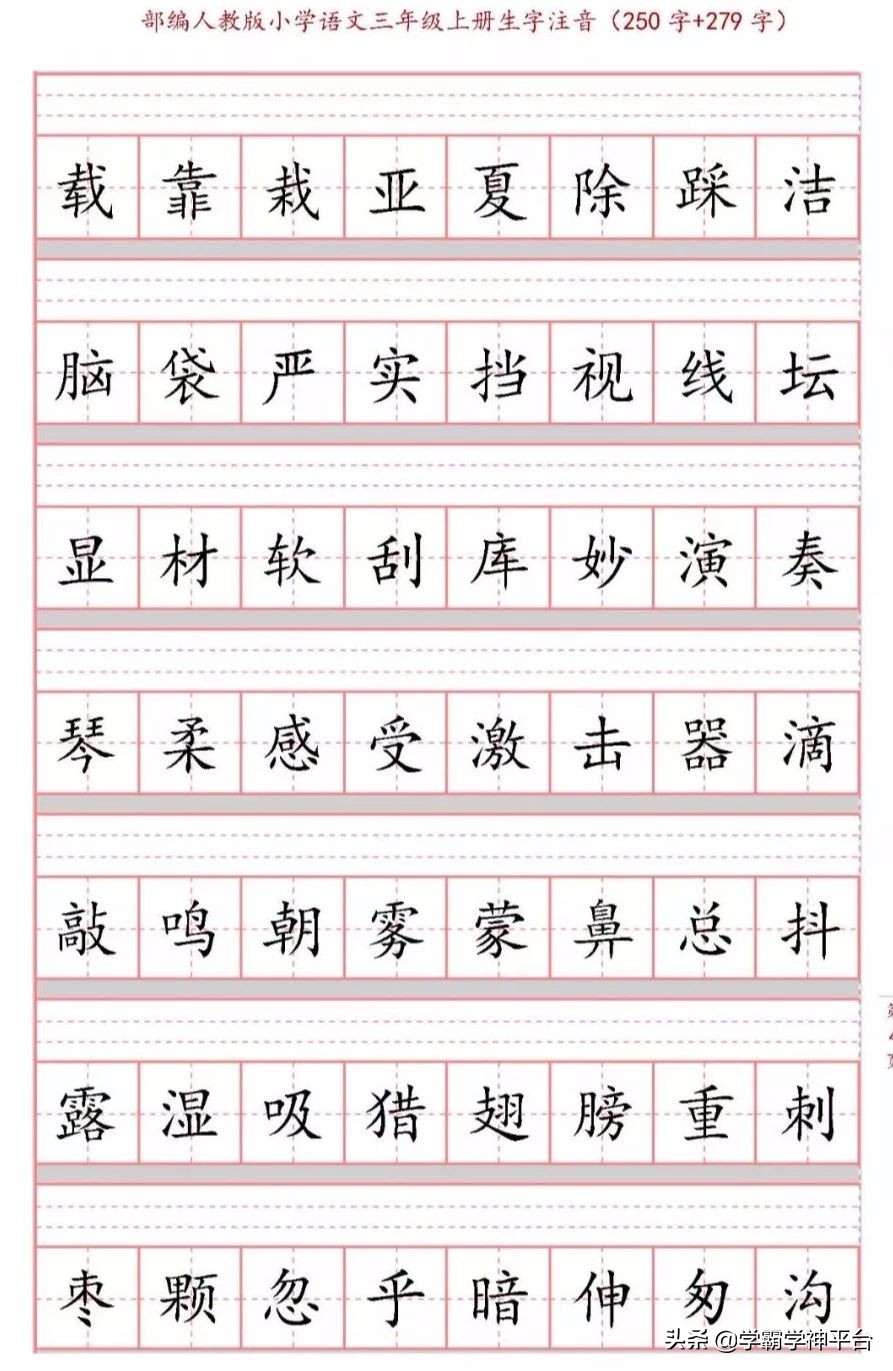 部编人教版小学语文三年级上册生字注音（250 字+279 字）
载 靠 栽 亚 夏 除 踩 洁
脑 袋 严 实 挡 视 线 坛
显 材 软 刮 库 妙 演 奏
琴 柔 感 受 激 击 器 滴
敲 鸣 朝 雾 蒙 鼻 总 抖
露 湿 吸 猎 翅 膀 重 刺
枣 颗 忽 乎 暗 伸 匆 沟
头条 @学霸学神平台